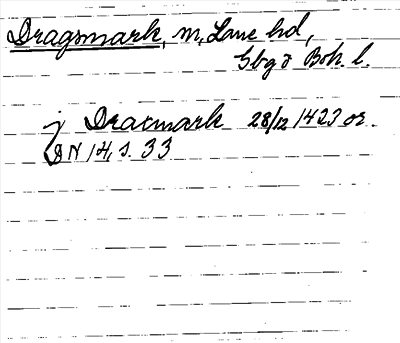 Dragsmark, m, Lane hd,
Gbg o Boh. l.
j Dracmark 28/12 1423 or.
DN 14, s. 33